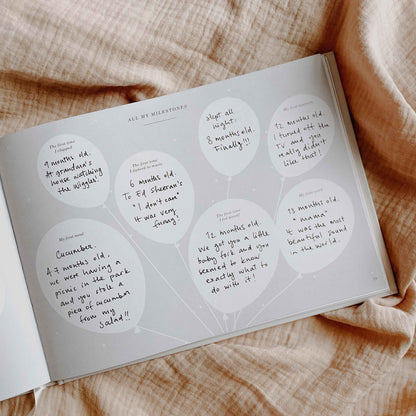 ALL MY MILESTONES
The first time
I clapped
9 months old.
At grandma's
house watching
the Wiggles!
The first time
I danced to music
6 months old.
To Ed Sheeran's
"I don't care"
It was very
funny!
slept all
night:
8 months old.
Finally!!!
12 months old.
I turned off the
TV and
really didn't
like that!
My first food
Cucumber.
At 7 months old,
we were having a
picnic in the park
and you stole a
piece of cucumber
from my
salad!!
The first time
12 months old.
We got you a little
baby fork and you
seemed to know
exactly what to
do with it!
My first word
13 months old.
"mama"
It was the most
beautiful sound
in the world.